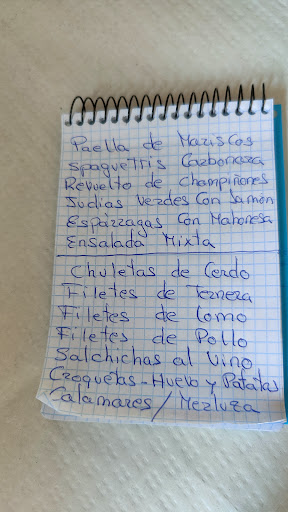 Paella de Mariscos
Spaguettis Carbonara
Revuelto de Champiñones
Judias Verdes Con Jamon
Esparragas Con Mahonesa
Ensalada Mixta
Chuletas de Cerdo
Filetes de Ternera
Filetes de Lomo
Filetes de Pollo
Salchichas al Vino
Croquetas-Huevo y Patatas
Calamares / Merluza